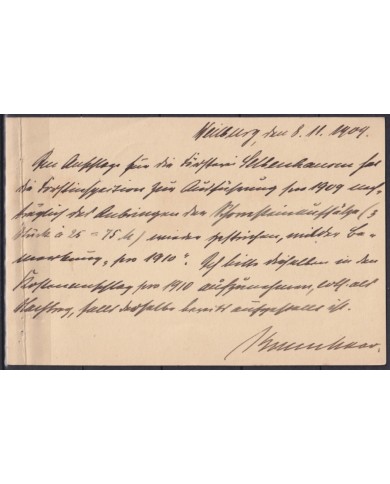 Weilburg, den 8. 11. 1909.
Im Anschlage für die Försterei hat
die Forstinspektion zur Ausführung pro 1909 nach-
träglich das Anbringen der Schornsteinaufsätze (3
Stück à 25 = 75 M) wieder gestrichen, mit der Be-
merkung „pro 1910“. Ich bitte dieselben in den
Kostenanschlag pro 1910 aufzunehmen, evtl. als
Nachtrag, falls derselbe bereits aufgestellt ist.